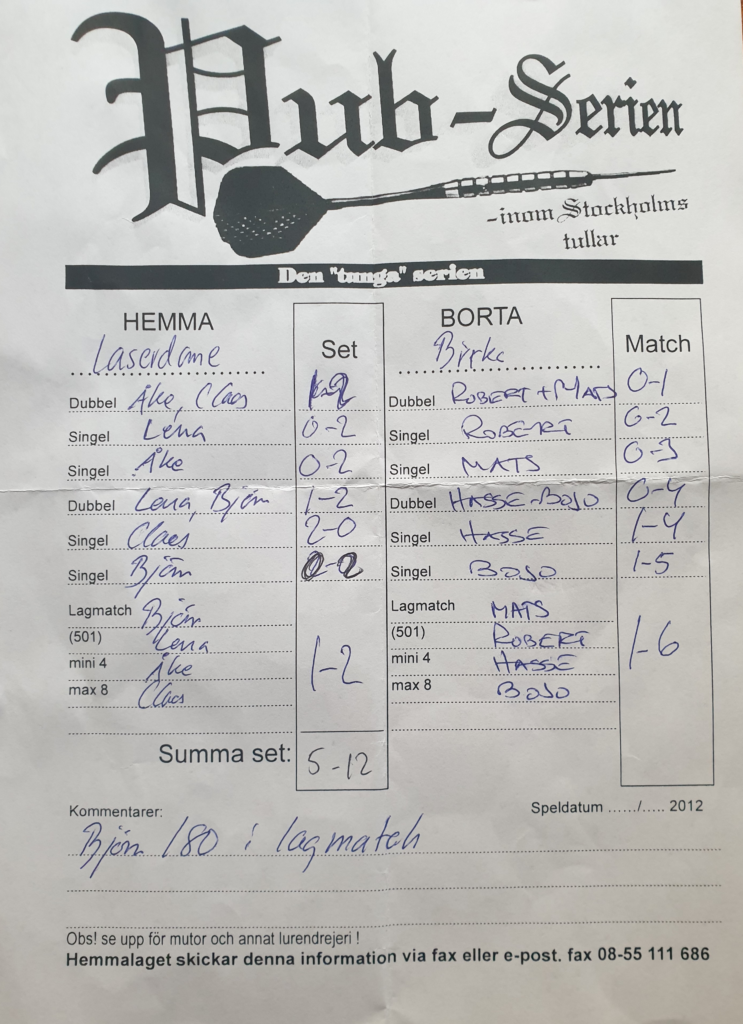 Pub-Serien
-inom Stockholms
tullar
Den "tunga" serien
HEMMA Set BORTA Match
Laserdome Birka
Dubbel Åke, Claes 1-2 Dubbel ROBERT + MATS 0-1
Singel Lena 0-2 Singel ROBERT 0-2
Singel Åke 0-2 Singel MATS 0-3
Dubbel Lena, Björn 1-2 Dubbel HASSE-BOJO 0-4
Singel Claes 2-0 Singel HASSE 1-4
Singel Björn 0-2 Singel BOJO 1-5
Lagmatch Björn Lagmatch MATS
(501) Lena (501) ROBERT
mini 4 Åke 1-2 mini 4 HASSE 1-6
max 8 Claes max 8 BOJO
Summa set: 5-12
Kommentarer: Speldatum ....../..... 2012
Björn 180 i lagmatch
Obs! se upp för mutor och annat lurendrejeri !
Hemmalaget skickar denna information via fax eller e-post. fax 08-55 111 686